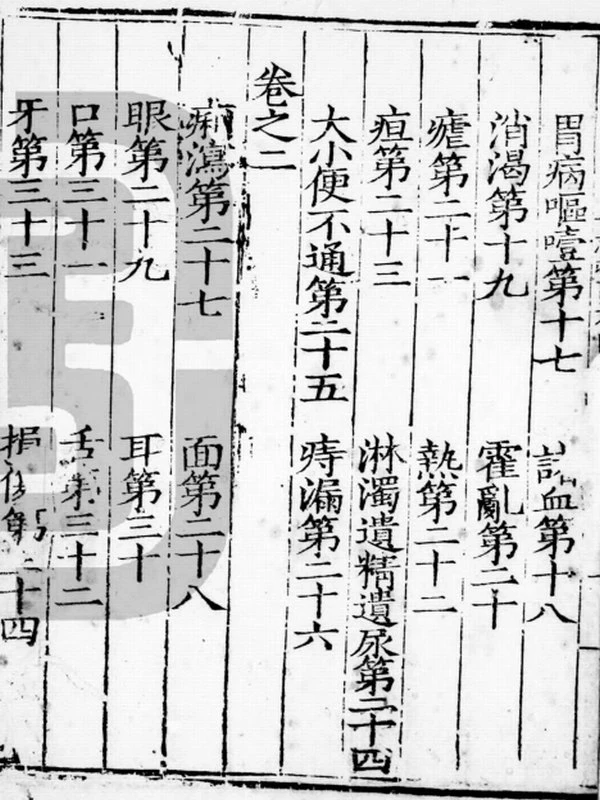 胃病嘔噎第十七　諸血第十八
消渴第十九　霍亂第二十
瘧第二十一　熱第二十二
疸第二十三　淋濁遺精遺尿第二十四
大小便不通第二十五　痔漏第二十六
卷之二
瀉第二十七　面第二十八
眼第二十九　耳第三十
口第三十一　舌第三十二
牙第三十三　損傷第三十四